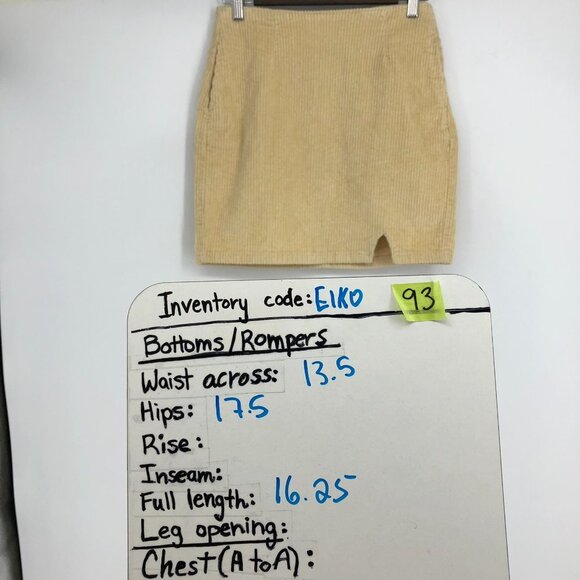 Inventory code: EIKO 93
Bottoms/Rompers
Waist across: 13.5
Hips: 17.5
Rise:
Inseam:
Full length: 16.25
Leg opening:
Chest (A to A):